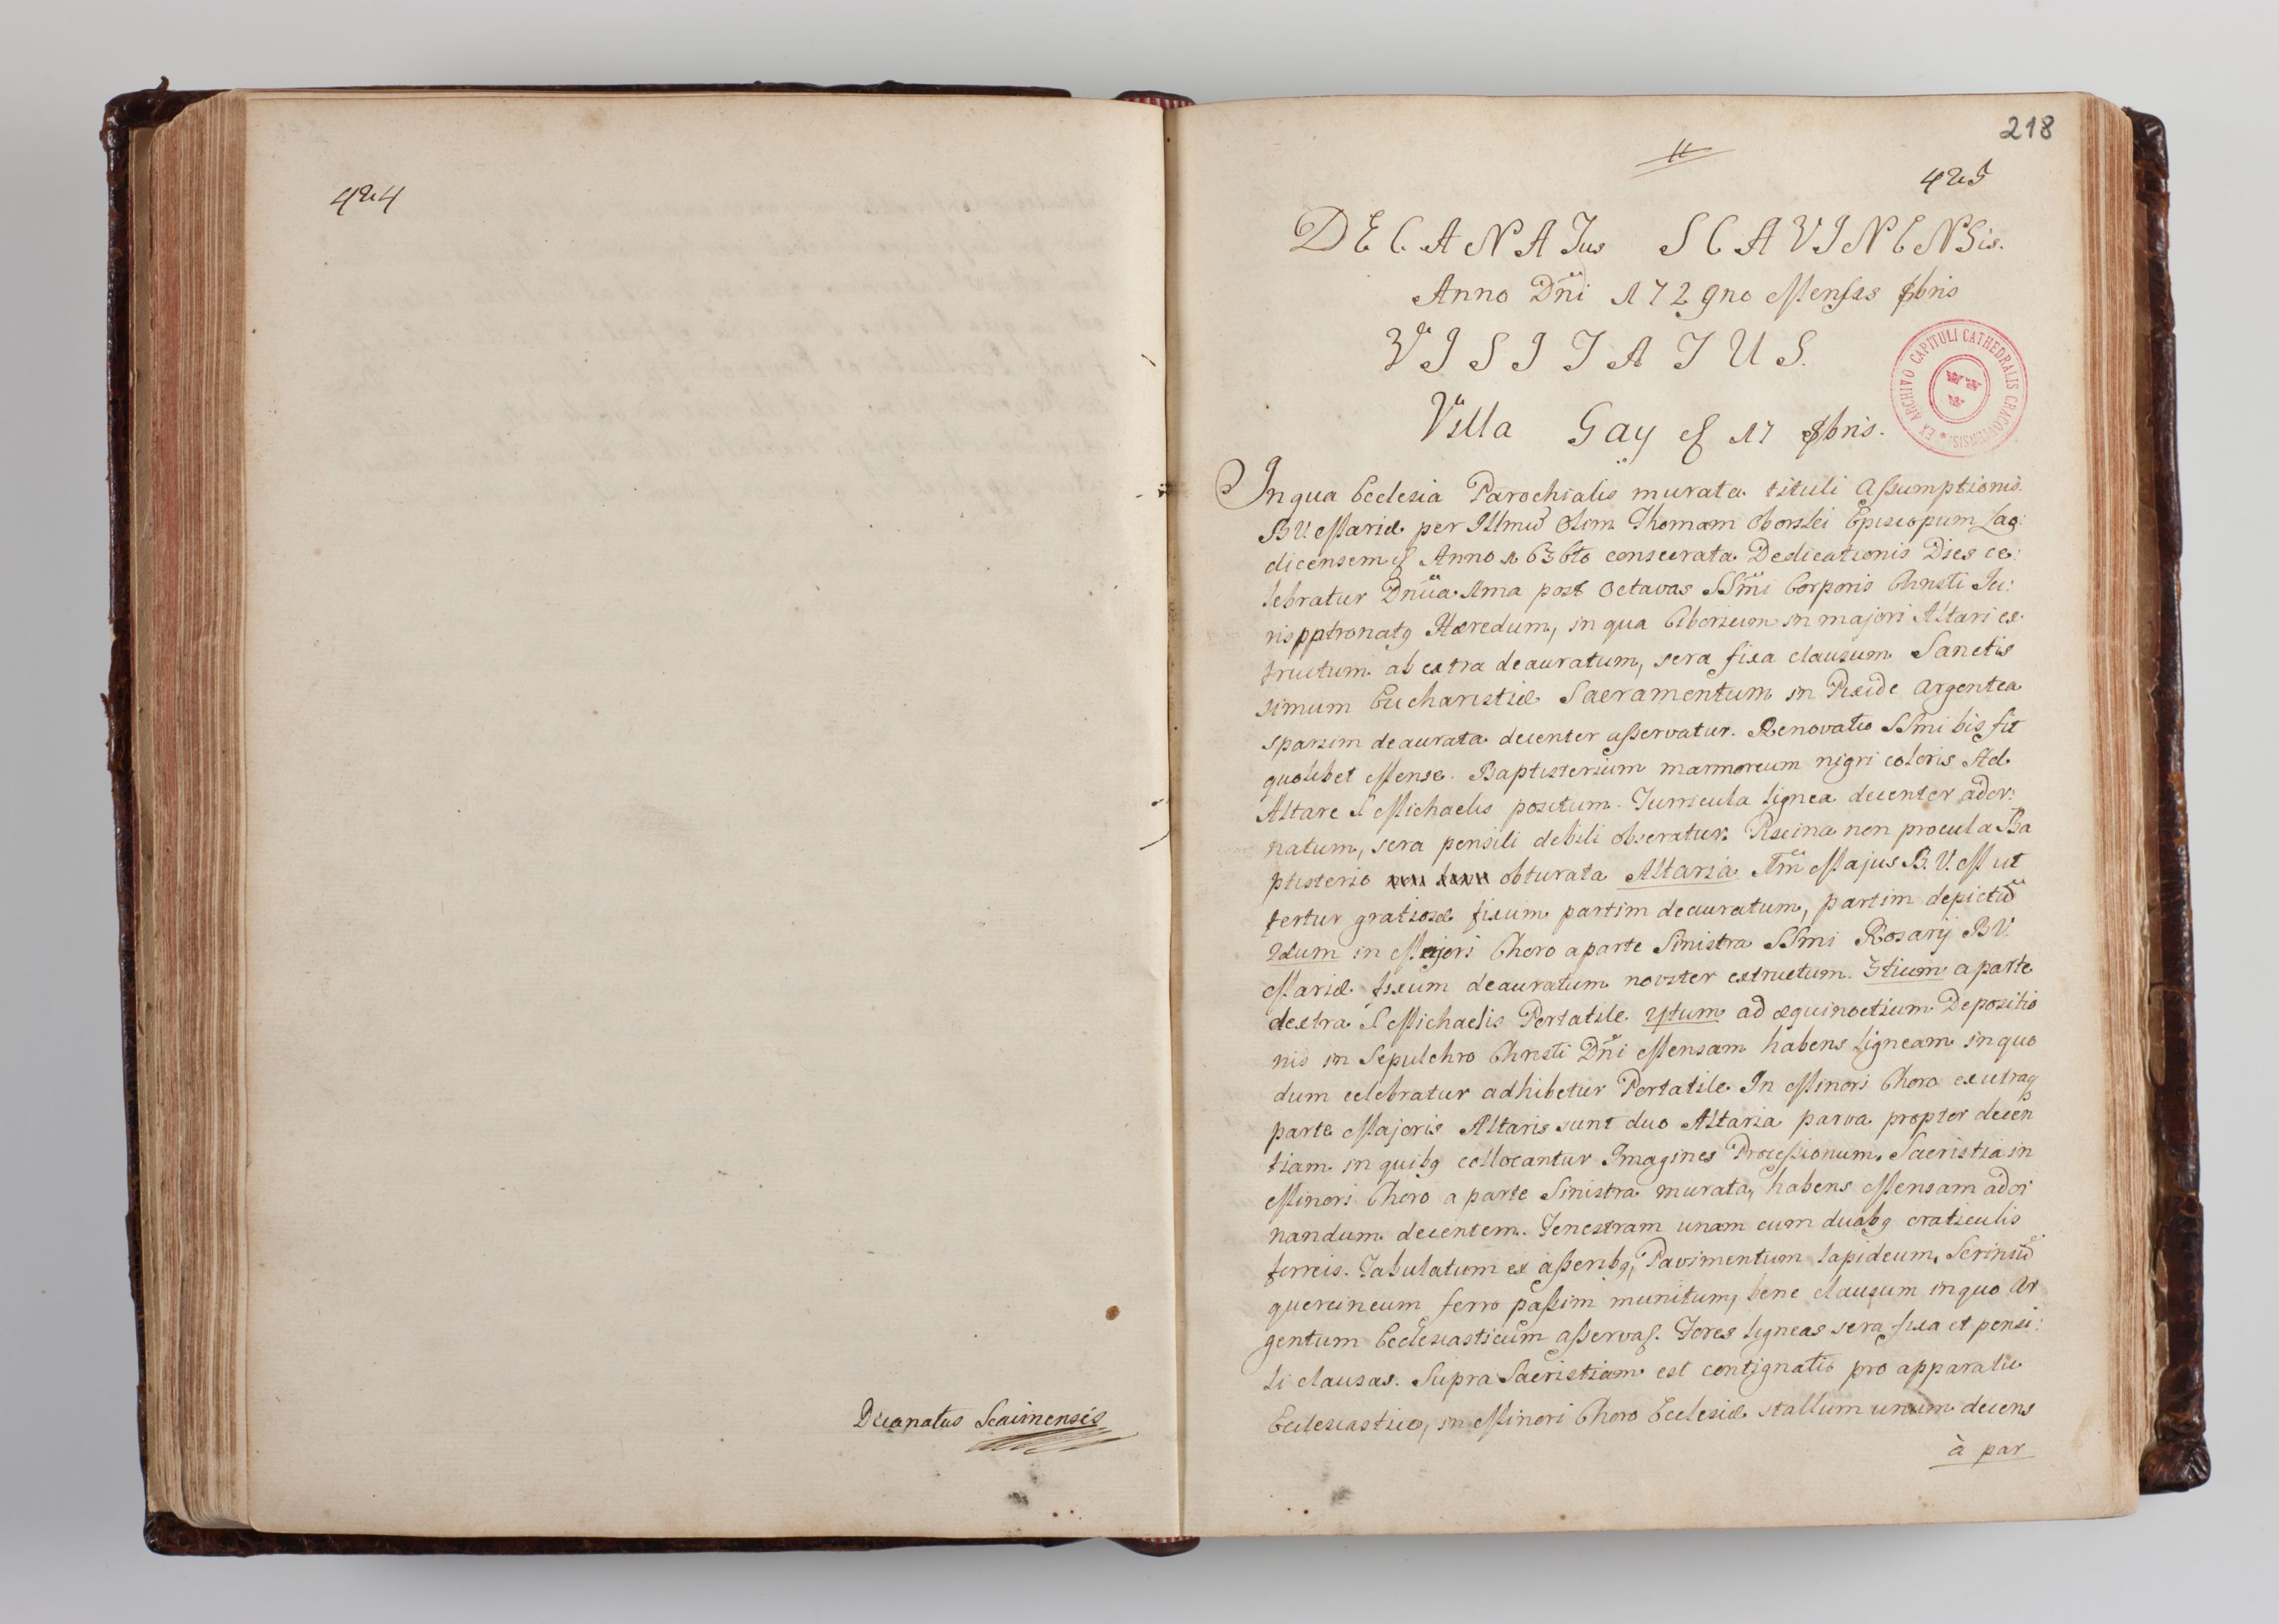 424
Decanatus Scavinensis
218
425
DECANATus SCAVINENSis.
Anno Dñi 1729no Mensis 8bris
VISITATUS.
Villa Gay 17 8bris.
EX ARCHIVO CAPITULI CATHEDRALIS CRACOVIENSIS
In qua Ecclesia Parochialis murata tituli Assumptionis
B V. Mariæ per Illmũ olim Thomam Oborski Episcopum Lao:
dicensem Anno 1636to consecrata Dedicationis Dies ce:
lebratur Dnica 1ma post Octavas SSmi Corporis Christi Ju:
ris pptronatq Hæredum, in qua Ciborium in majori Altari ex
tructum ab extra deauratum, sera fixa clausum Sanctis
simum Eucharistiæ Sacramentum in Pixide argentea
sparsim deaurata decenter asservatur. Renovatio SSmi bis fit
quolibet Mense. Baptisterium marmoreum nigri coloris Ad
Altare S Michaelis positum. Turricula lignea decenter ador:
natum, sera pensili debili obseratur. Piscina non procul a Ba
ptisterio obturata Altaria 1m Majus B. V. M ut
fertur gratiosæ fixum partim deauratum, partim depictũ
2dum in Majori Choro a parte Sinistra SSmi Rosarij B V.
Mariæ fixum deauratum noviter extructum. 3tium a parte
dextra S Michaelis Portatile 4tum ad æquinoctium Depositio
nis in Sepulchro Christi Dñi Mensam habens ligneam in quo
dum celebratur adhibetur Portatile. In Minori Choro ex utraq
parte Majoris Altaris sunt duo Altaria parva propter decen
tiam in quibq collocantur Imagines Processionum. Sacristia in
Minori Choro a parte Sinistra murata, habens Mensam ador
nandum decentem. Fenestram unam cum duabq craticulis
ferreis. Tabulatum ex asseribq, Pavimentum lapideum, Scriniũ
quercineum ferro passim munitum, bene clausum in quo Ar
gentum Ecclesiasticum asservaʃ. Fores ligneas sera fixa et pensi:
li clausas. Supra Sacristiam est contignatio pro apparatu
Ecclesiastico, in Minori Choro Ecclesiæ stallum unum decens
à par